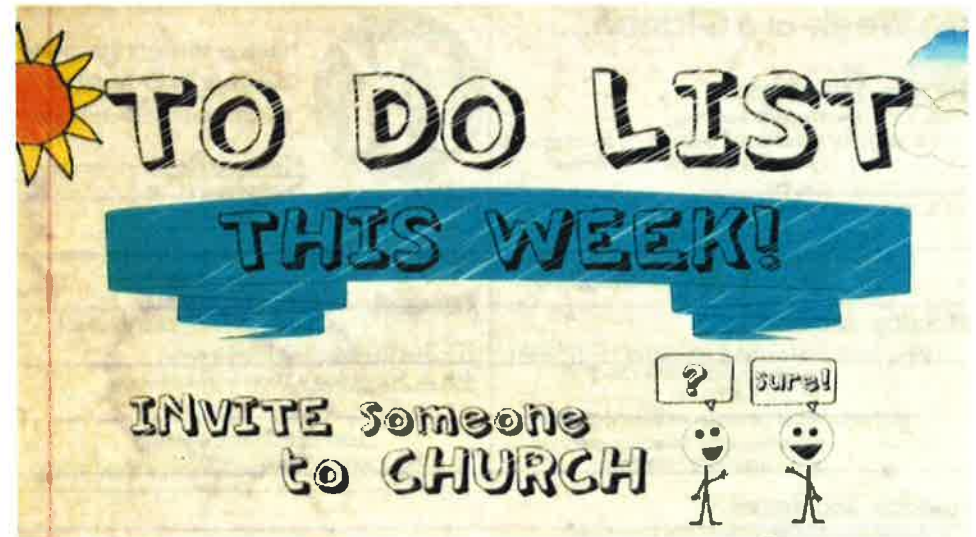 TO DO LIST
THIS WEEK!
? sure!
INVITE Someone
to CHURCH